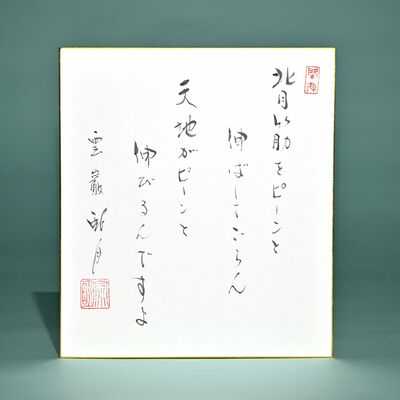 背筋をピーンと
伸ばしてごらん
天地がピーンと
伸びるんですよ
雲巌